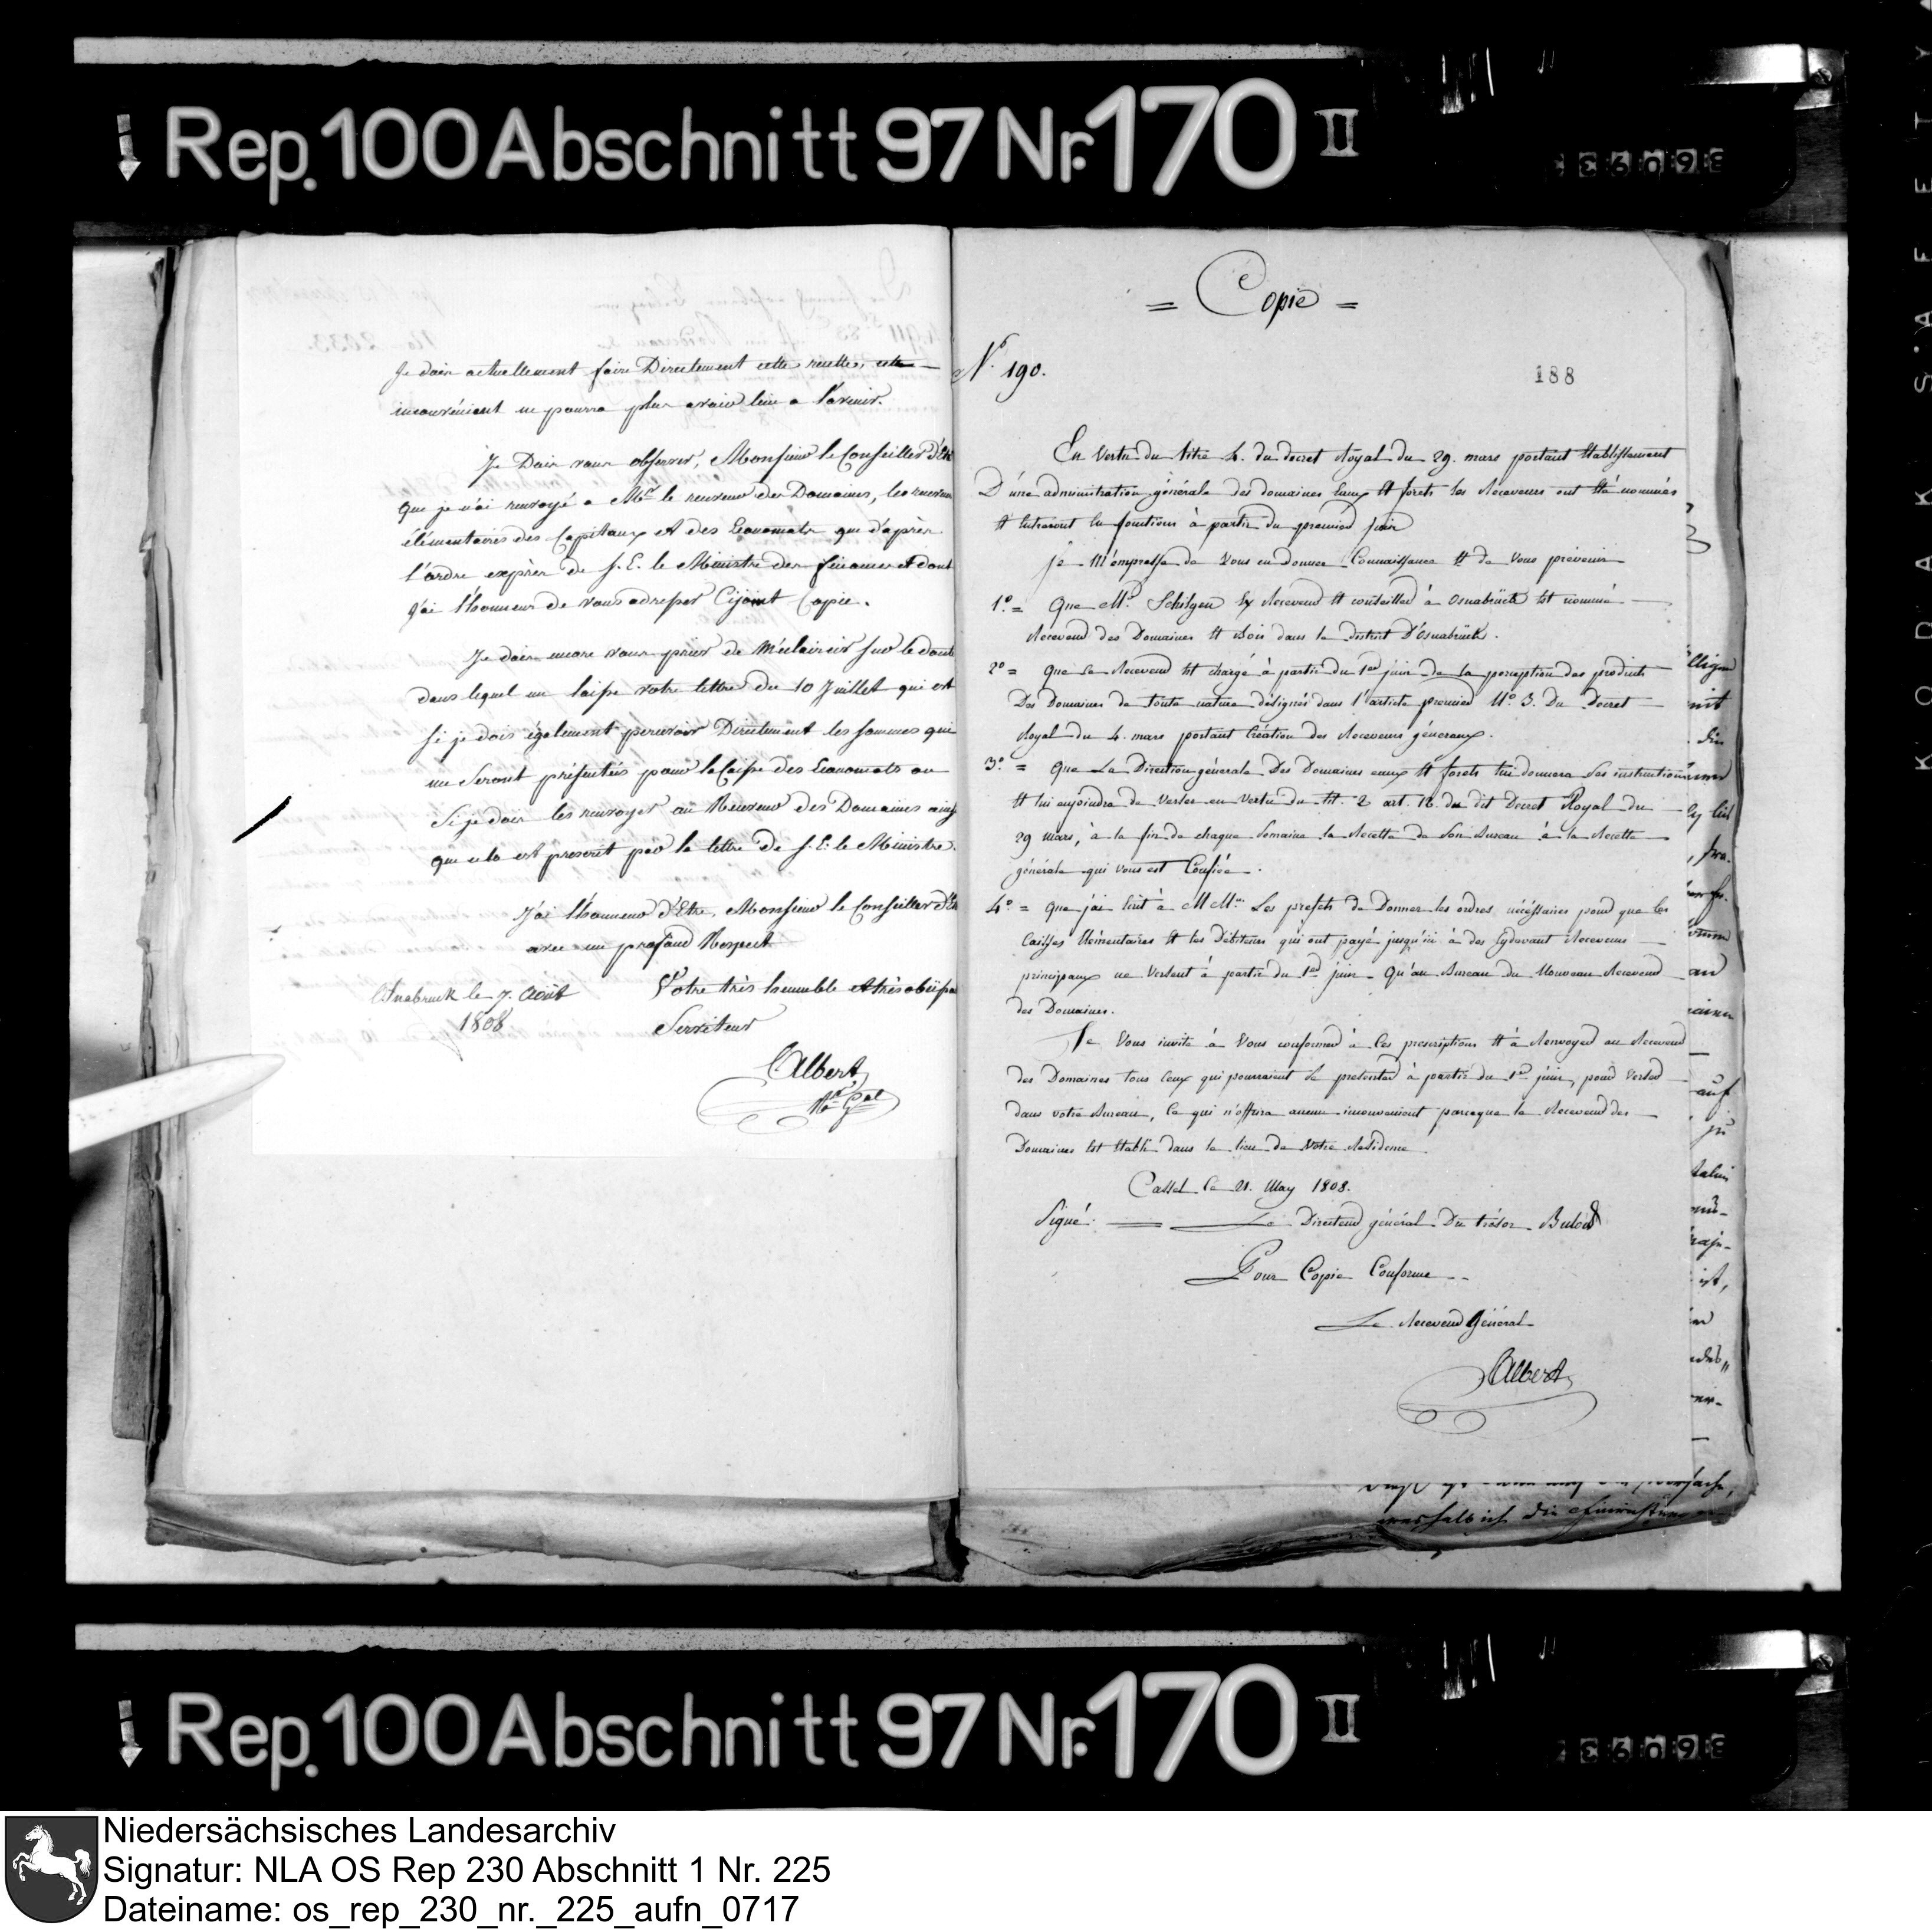 Rep. 100 Abschnitt 97 Nr. 170 II
Je dois actuellement faire Directement cette recette, cette
inconvénient ne pourra plus avoir lieu a l'avenir.
Je Dois vous observer, Monsieur le Conseiller d'Etat
que je n'ai renvoyé a Mr. le receveur des Domaines, les receveurs
élémentaires des Capitaux et des Economats que d'après
l'ordre exprès de S. E. le Ministre des finances et dont
j'ai l'honneur de vous adresser Cijoint Copie.
Je dois encore vous prier de M'éclaircir sur le doute
dans lequel me laisse votre lettre du 10 Juillet qui est
si je dois également percevoir Directement les sommes qui
me Seront présentées pour la Caisse des Economats ou
Si je dois les renvoyer au Receveur des Domaines ainsi
que cela est prescrit par la lettre de S. E. le Ministre.
J'ai l'honneur d'Etre, Monsieur le Conseiller d'Et
avec un profond Respect
Osnabruck le 7. Août
1808
Votre très humble et très obéissa
Serviteur
Albert
Rr Gal
= Copie =
N.° 190.
188
En Vertu du titre 4. du decret Royal du 29. mars portant Etablissement
D'une administration générale des domaines Eaux Et forets les Receveurs ont Eté nommés
Et Entreront En fonctions à partir du premier juin
je M'empresse de Vous en donner Connaissance Et de Vous prévenir
1.° = Que Mr. Schilgen Ex Receveur Et conseiller à Osnabrück Est nommé
Receveur des Domaines Et Bois dans le District D'Osnabrück.
2° = Que Ce Receveur Est chargé à partir du 1er juin de la perception des produits
Des Domaines de toute nature désignés dans l'article premier N.° 3. Du Decret
Royal du 4. mars portant Création des Receveurs généraux.
3.° = Que La Direction générale Des Domaines eaux Et forets lui donnera Ses instructions
Et lui enjoindra de Verser en Vertu du tit. 2 art. 12. du dit Decret Royal du
29 mars, à la fin de chaque Semaine la Recette de Son Bureau à la Recette
générale qui vous est Confiée.
4.° = Que j'ai Ecrit à MMrs. Les prefets de Donner les ordres nécéssaires pour que les
Caisses Elémentaires Et les Débiteurs qui ont payé jusqu'ici à des Cydevant Receveurs
principaux ne Versent à partir du 1er juin Qu'au Bureau du Nouveau Receveur
des Domaines.
Je Vous invite à Vous conformer à Ces prescriptions Et à Renvoyer au Receveur
des Domaines tous Ceux qui pourraient Se presenter à partir du 1er juin, pour Verser
dans votre Bureau, Ce qui n'offrira aucun inconvenient parceque le Receveur des
Domaines Est Etabli dans le lieu de Votre Residence
Cassel Ce 21. May 1808.
Signé: Le Directeur général Du trésor
Pour Copie Conforme
Le Receveur Général
Albert
Rep. 100 Abschnitt 97 Nr. 170 II
KODAK SAFETY
Niedersächsisches Landesarchiv
Signatur: NLA OS Rep 230 Abschnitt 1 Nr. 225
Dateiname: os_rep_230_nr._225_aufn_0717